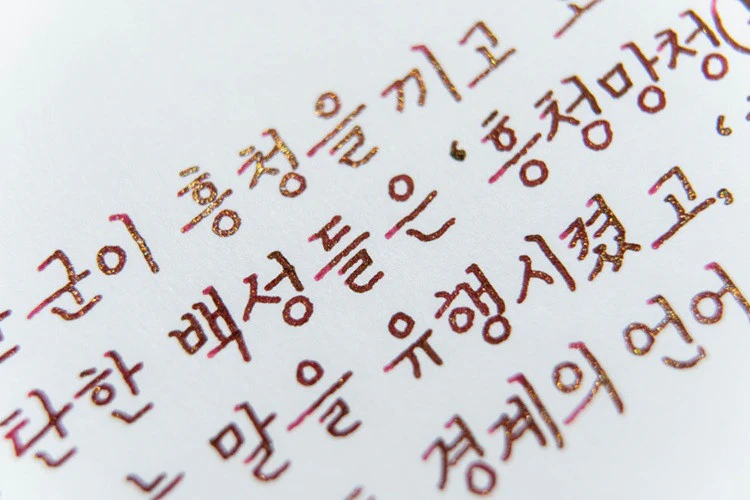 군이 흥청을 끼고
탄한 백성들은 '흥청망청(
말을 유행시켰고, '
경계의 언어